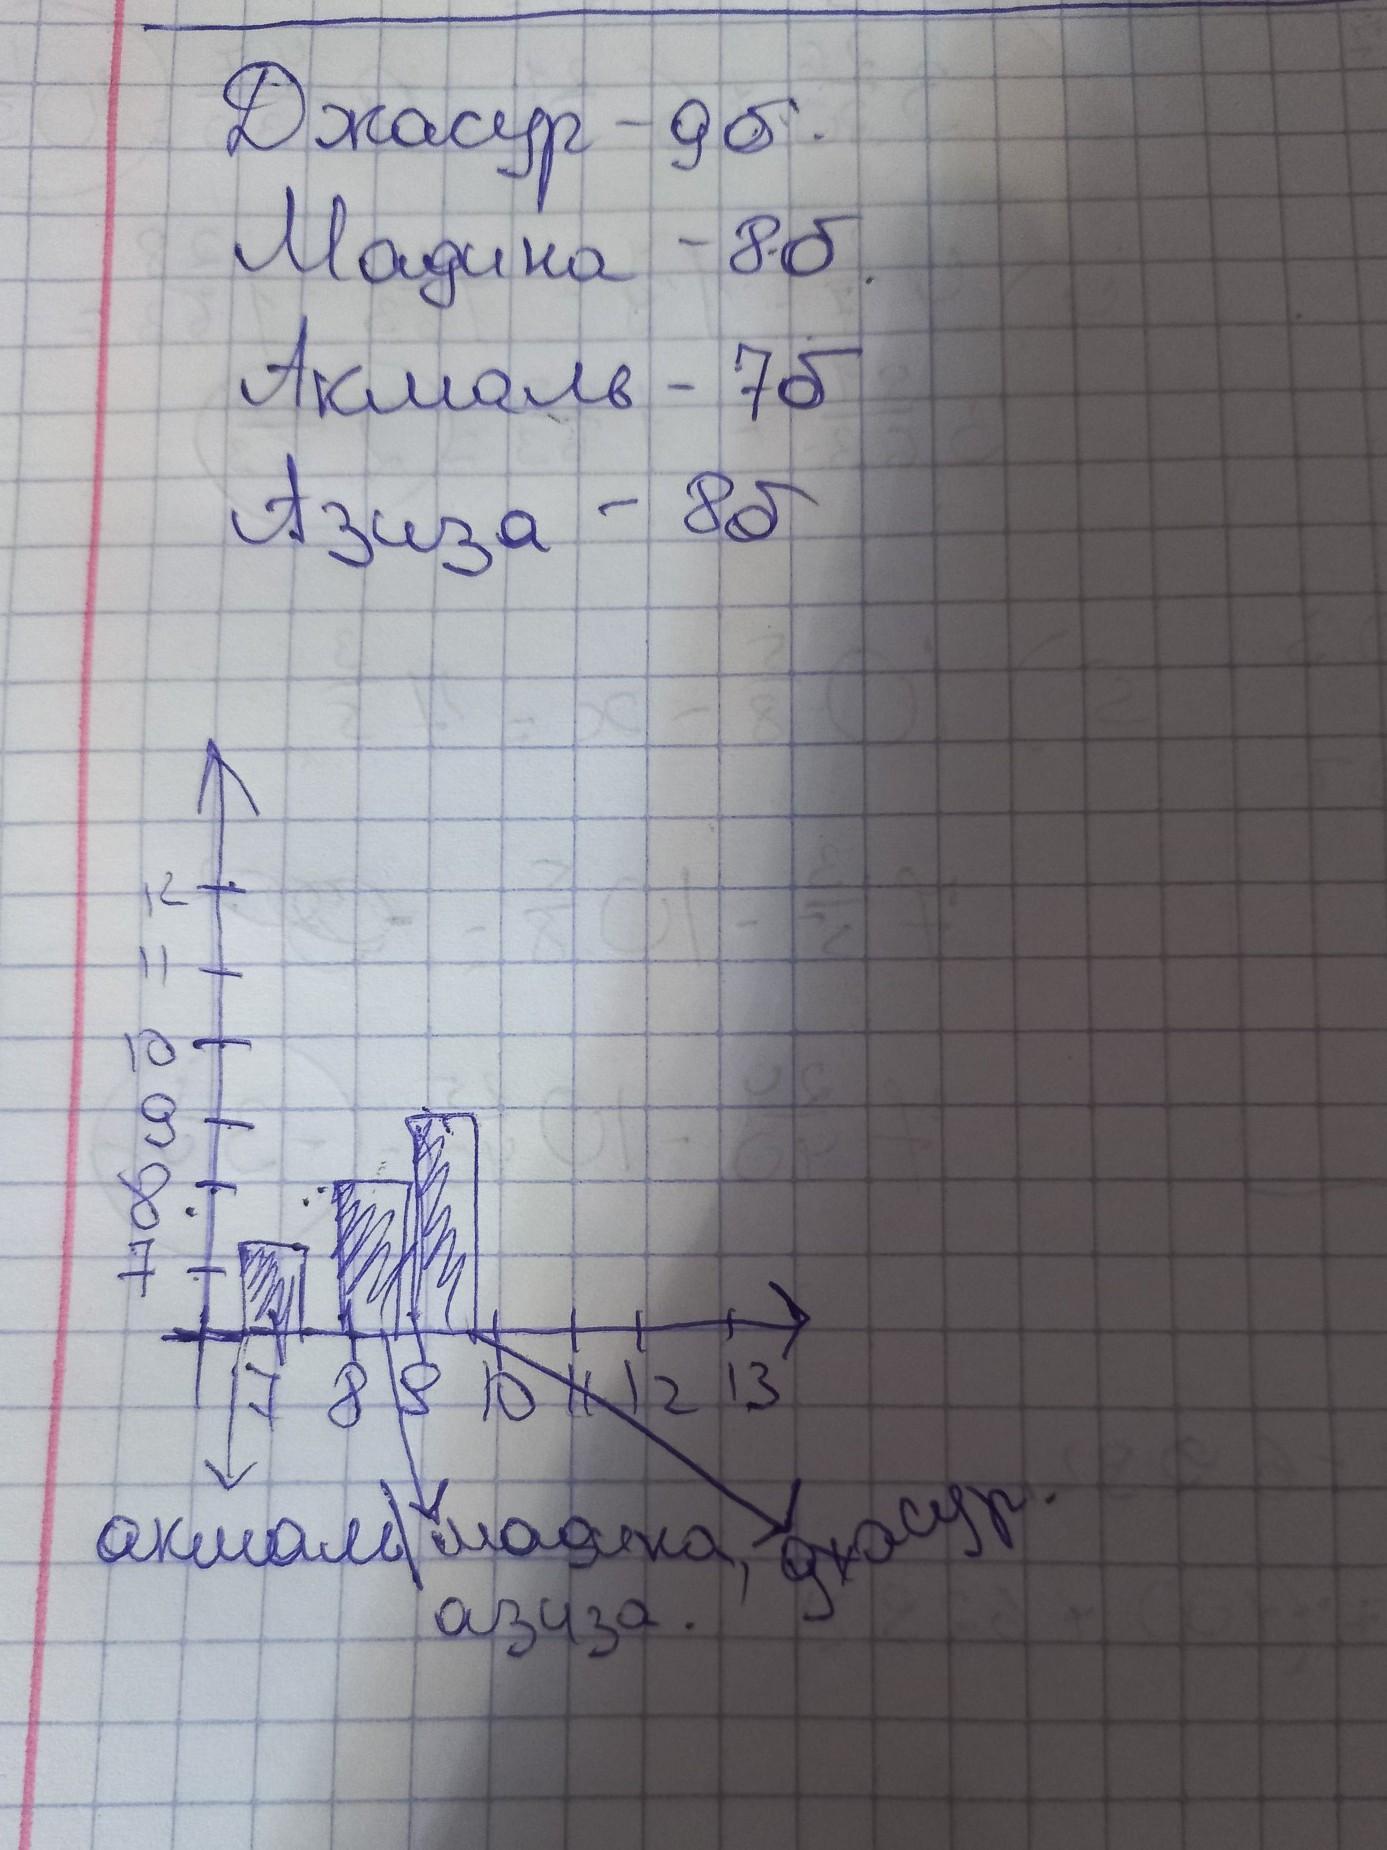 Джасур - 9б.
Мадина - 8б.
Акмаль - 7б
Азиза - 8б
12
11
10
9
8
7
7 8 9 10 11 12 13
акмаль мадина, джасур.
азиза.